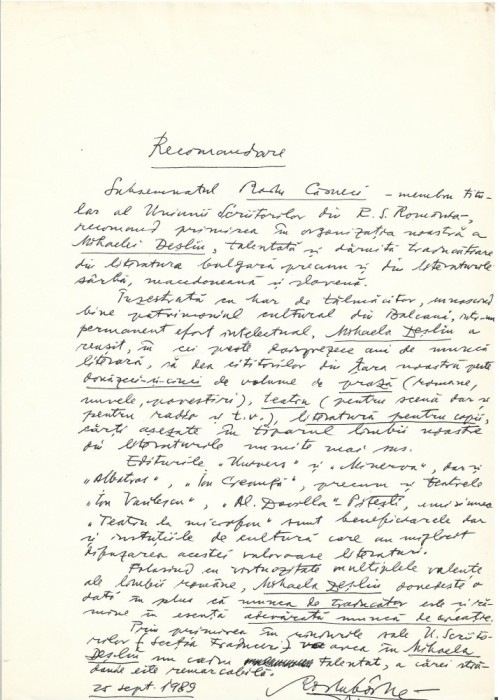 Recomandare
Subsemnatul Radu Cârneci – membru titu-
lar al Uniunii Scriitorilor din R. S. România,
recomand primirea în organizația noastră a
Mihaelei Deșliu, talentată și dăruită traducătoare
din literatura bulgară precum și din literaturile
sârbă, macedoneană și slovenă.
Înzestrată cu har de tălmăcitor, cunoscând
bine patrimoniul cultural din Balcani, într-un
permanent efort intelectual, Mihaela Deșliu a
reușit, în cei peste douăzeci ani de muncă
literară, să dea cititorilor din țara noastră peste
douăzeci-și-cinci de volume de proză (romane,
nuvele, povestiri), teatru (pentru scenă dar și
pentru radio și t.v.), literatură pentru copii,
cărți așezate în tiparul limbii noastre
din literaturile numite mai sus.
Editurile „Univers" și „Minerva", dar și
„Albatros", „Ion Creangă", precum și teatrele
„Ion Vasilescu", „Al. Davilla" Pitești, emisiunea
„Teatru la microfon" sunt beneficiarele dar
și instituțiile de cultură care au mijlocit
difuzarea acestei valoroase literaturi.
Folosind cu virtuozitate multiplele valențe
ale limbii române, Mihaela Deșliu dovedește o
dată în plus că munca de traducător este și ră-
mâne în esență adevărată muncă de creație.
Prin primirea în rândurile sale U. Scriito-
rilor (secția Traduceri) va avea în Mihaela
Deșliu un cadru talentat, a cărei stră-
danie este remarcabilă.
25 sept. 1989